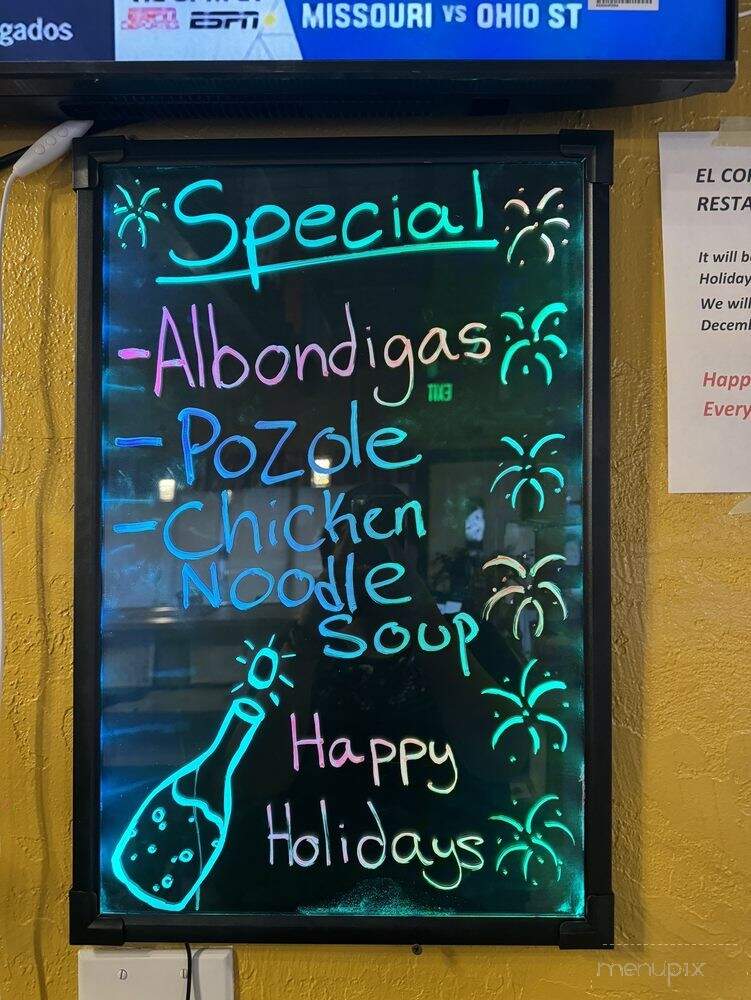 gados
ESPN
MISSOURI VS OHIO ST
Special
-Albondigas
EXIT
-Pozole
-Chicken
Noodle
Soup
Happy
Holidays
EL CO
RESTA
It will b
Holiday
We will
Decemb
Happ
Every
menupix